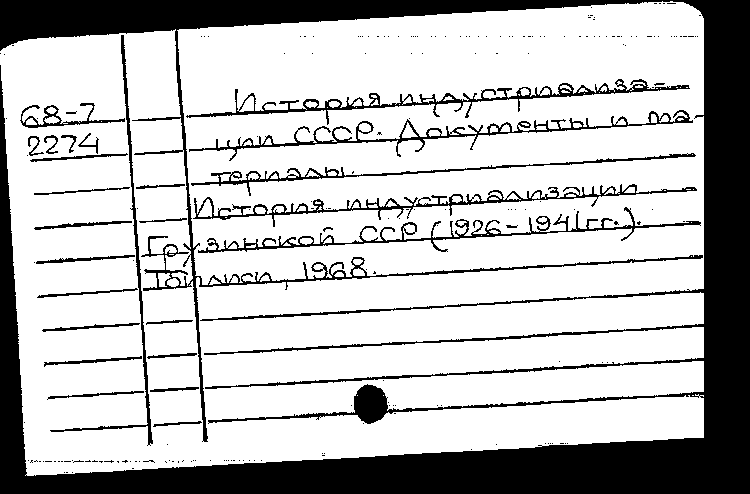 68-7 История индустриализа-
2274 ции СССР. Документы и ма-
териалы.
История индустриализации
Грузинской ССР (1926-1941гг.).
Тбилиси, 1968.